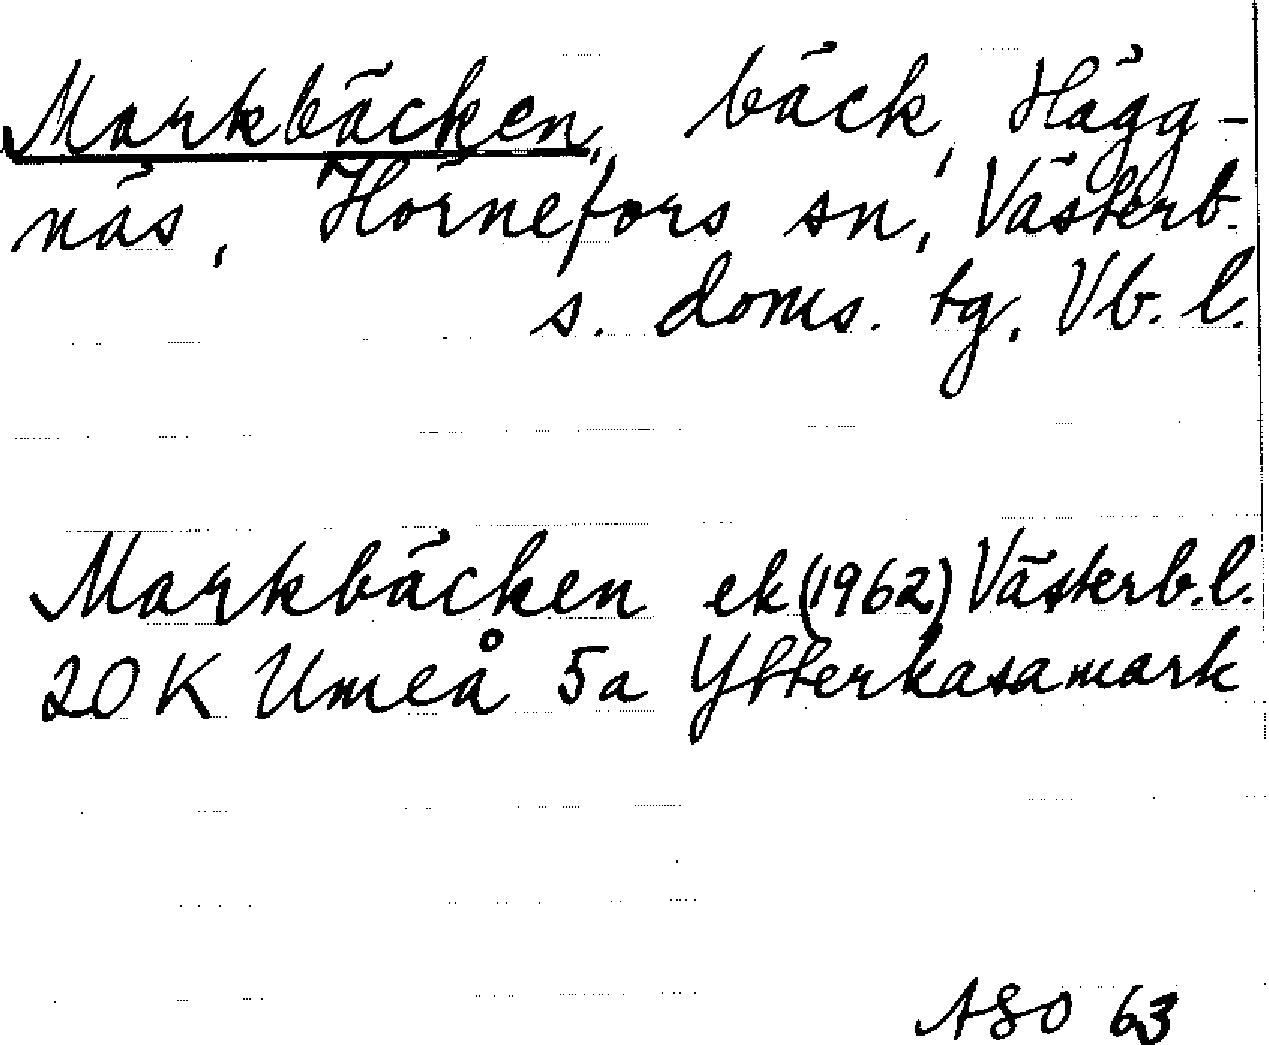 Markbäcken, bäck, Hägg-
näs, Hörnefors sn, Västerb.
s. doms. tg, Vb. l.
Markbäcken ek (1962) Västerb. l.
20 K Umeå 5a Ytterkasamark
ASO 63